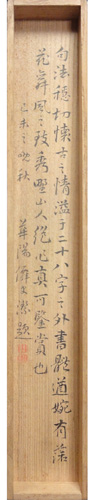 句法穩切懐古之情溢于二十八字之外書艶遒婉有落
花舞風之致秀野山人絶也真可鑒賞也
己未之晩秋
華陽
題